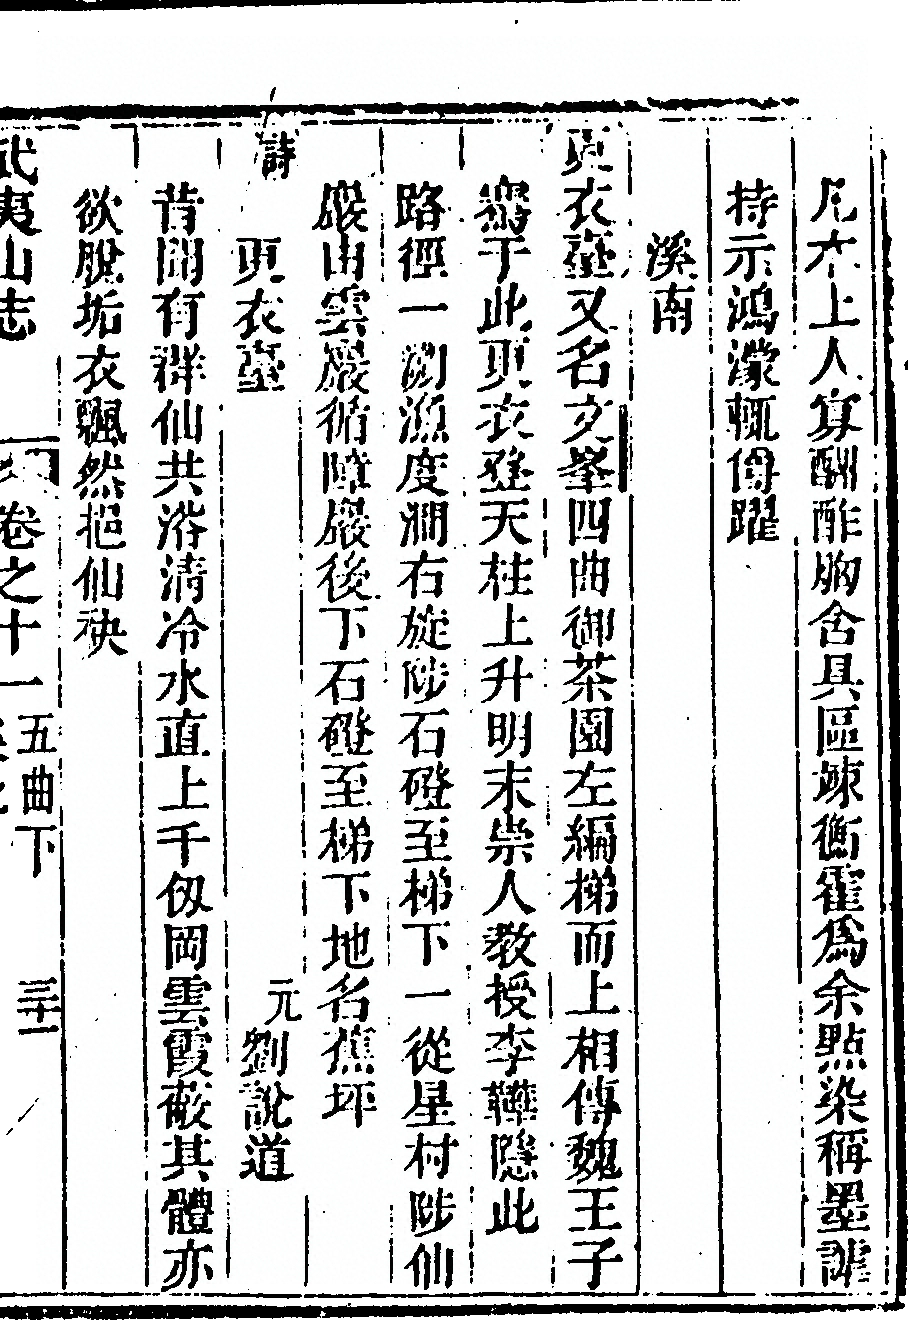 凡木上人寡酬酢胸含具區竦衡霍爲余點染稱墨謔
持示鴻濛輒
躍
溪南
更衣臺又名文峯四曲御茶園左編梯而上相傳魏王子
騫于此更衣登天柱上升明末崇人教授李鞾隱此
路徑一測漁度澗右旋陟石磴至梯下一從星村陟仙
巖由雲巖循障巖後下石磴至梯下地名蕉坪
詩
更衣臺 元劉說道
昔聞有群仙共浴清冷水直上千仞岡雲霞蔽其體亦
欲脫垢衣飄然挹仙袂
武夷山志 卷之十一 五曲下 三十二